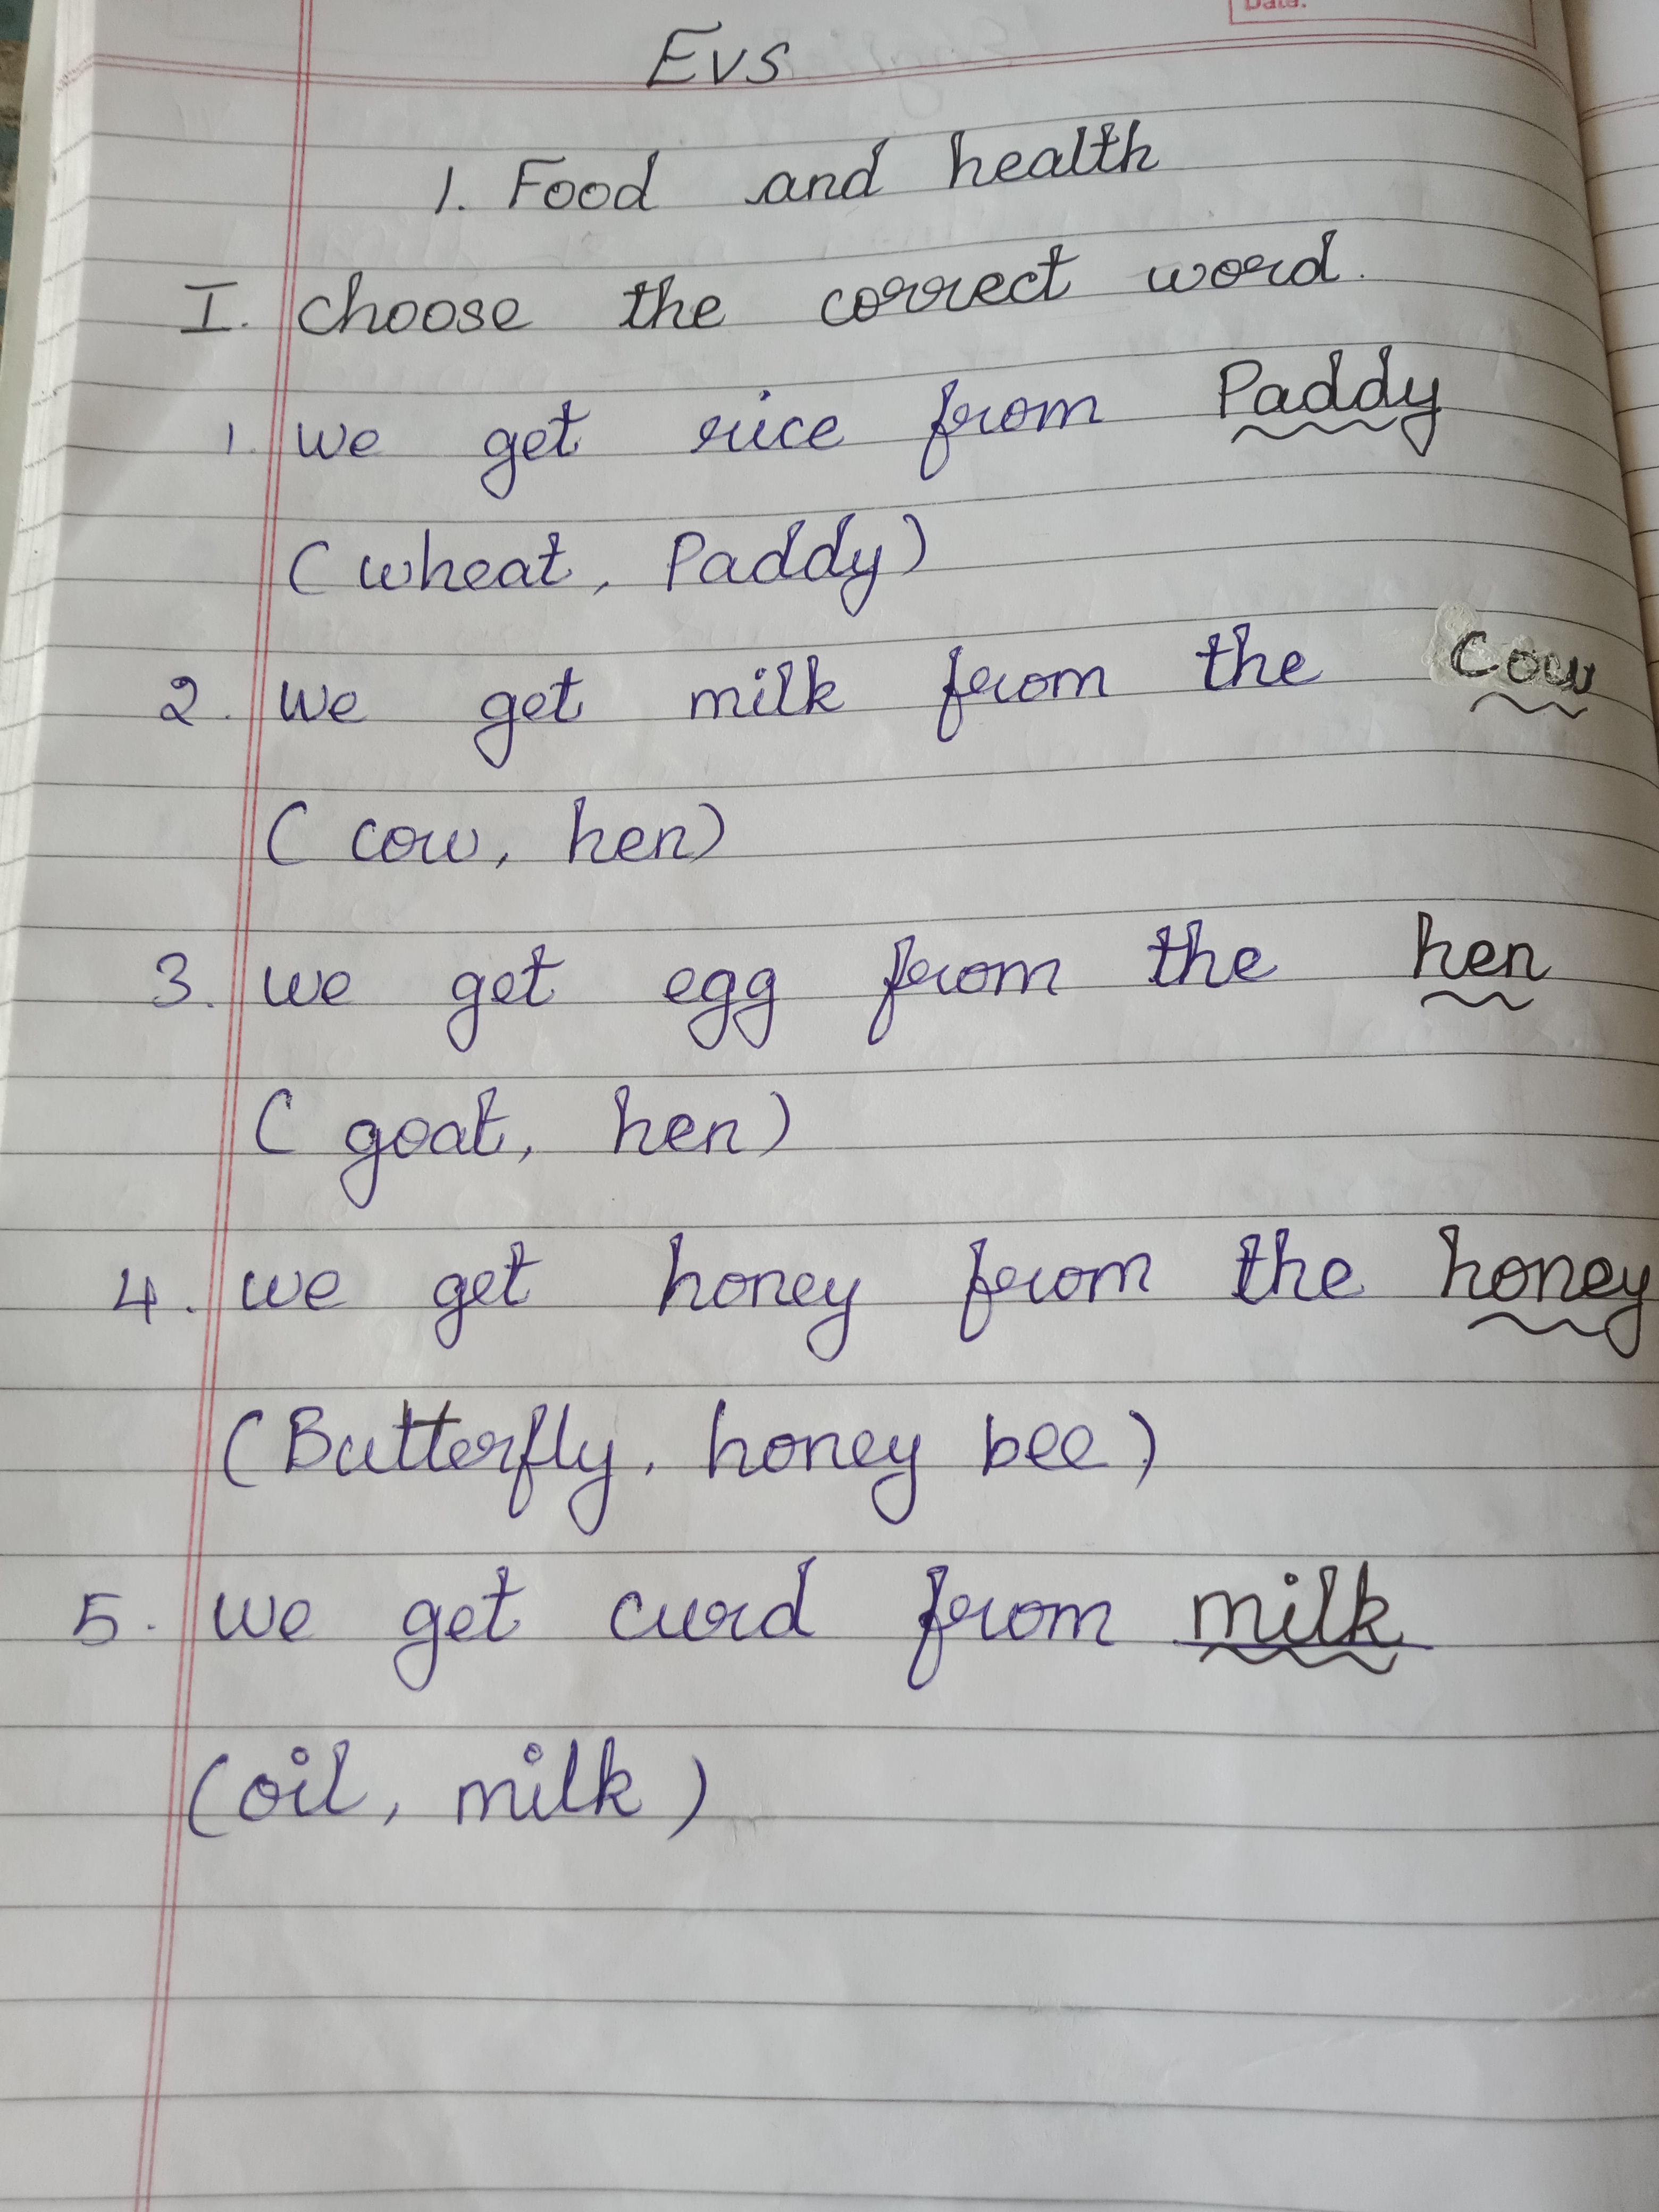 Date:
Evs
1. Food and health
I. choose the correct word.
1. we get rice from Paddy
(wheat, Paddy)
2. we get milk from the cow
(cow, hen)
3. we get egg from the hen
(goat, hen)
4. we get honey from the honey
(Butterfly, honey bee)
5. we get curd from milk
(oil, milk)